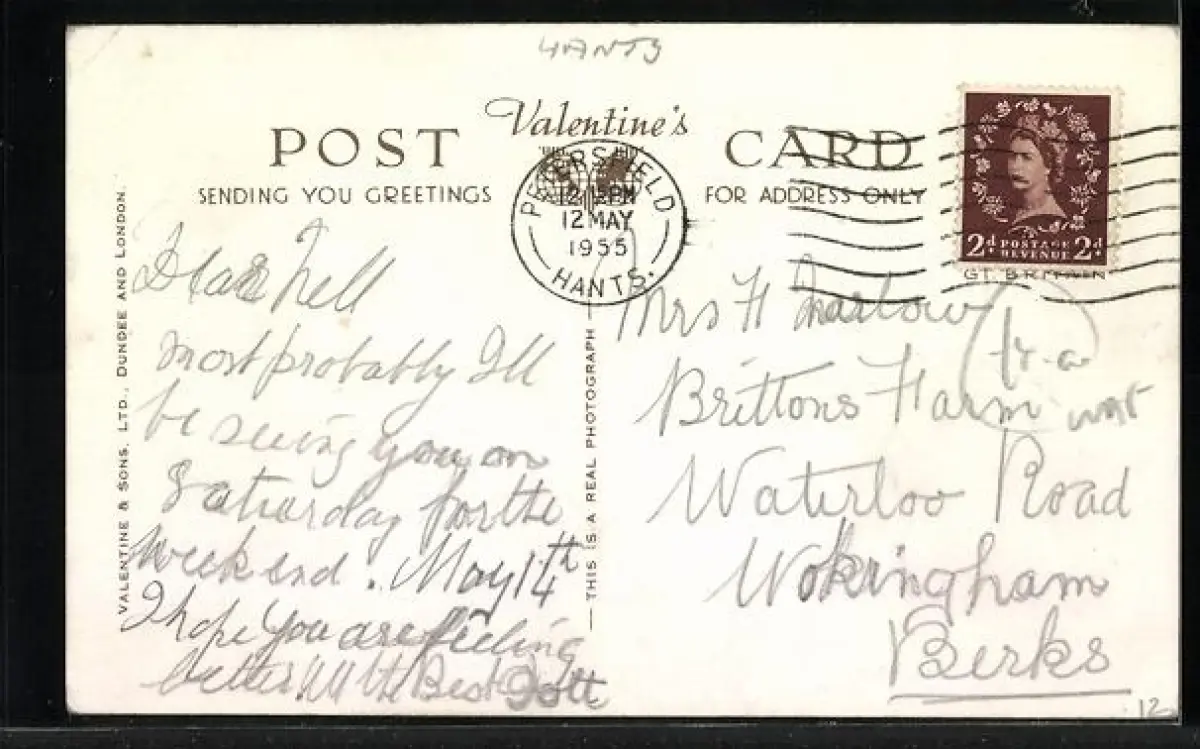 HANTS
Valentine's
POST CARD
SENDING YOU GREETINGS
FOR ADDRESS ONLY
PETERSFIELD
12 15PM
12 MAY
1955
HANTS.
2d POSTAGE REVENUE 2d
GT. BRITAIN
VALENTINE & SONS. LTD., DUNDEE AND LONDON.
Dear Nell
most probably Ill
be seeing you on
Saturday for the
week end. May 14th
I hope you are feeling
better All the Best
THIS IS A REAL PHOTOGRAPH
Mrs H
Brittons Farm
Waterloo Road
Wokingham
Berks
12